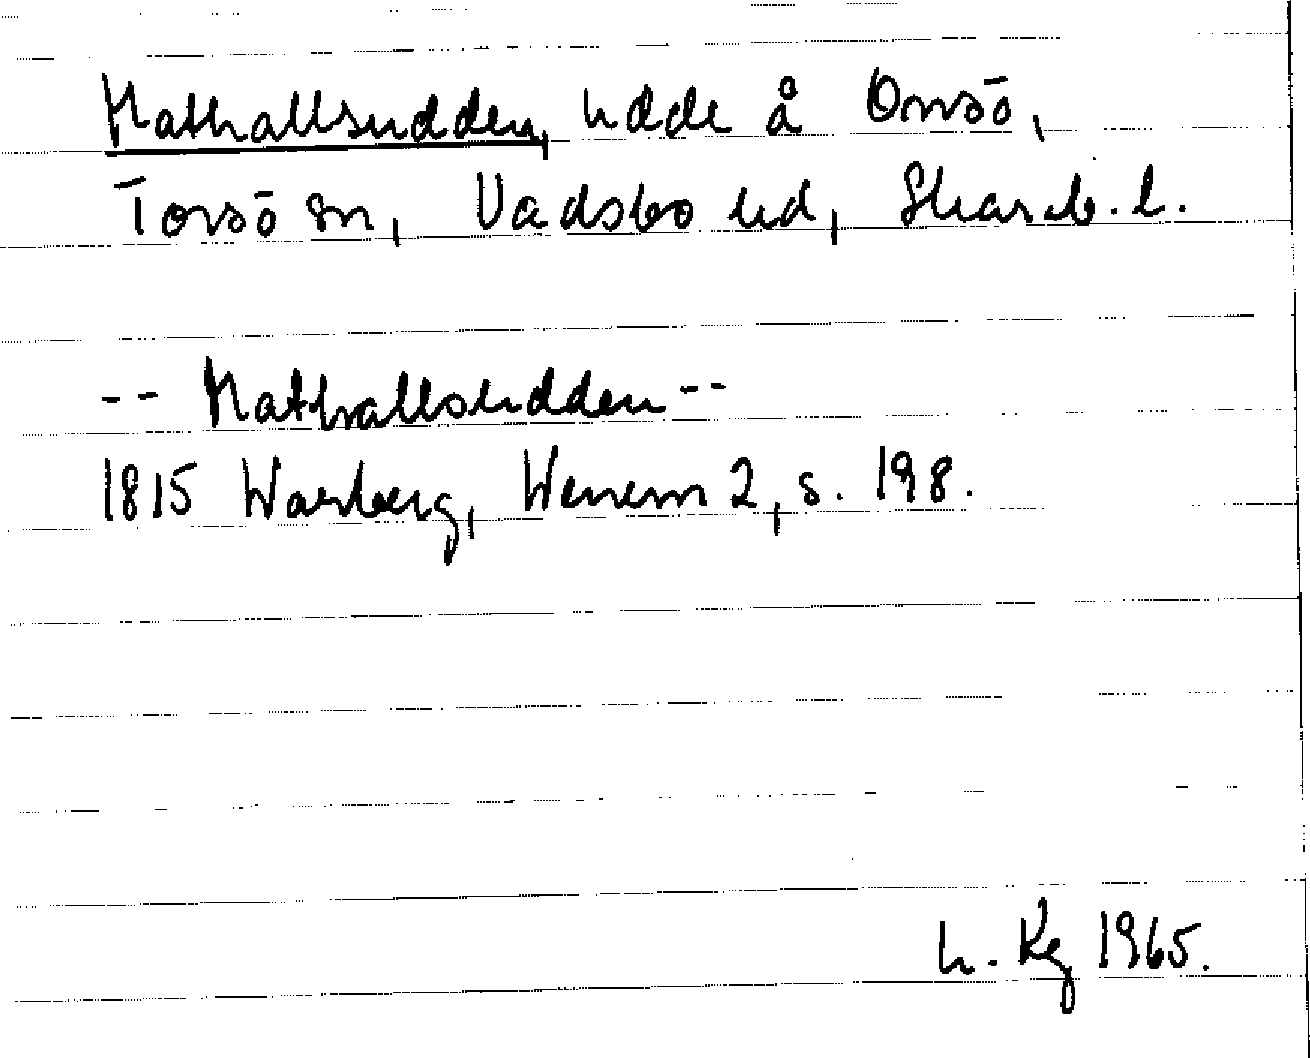 Mathallsudden, udde å Onsö,
Torsö sn, Vadsbo hd, Skarab. l.
-- Mathallsudden --
1815 Warberg, Wenern 2, s. 198.
Kg 1965.